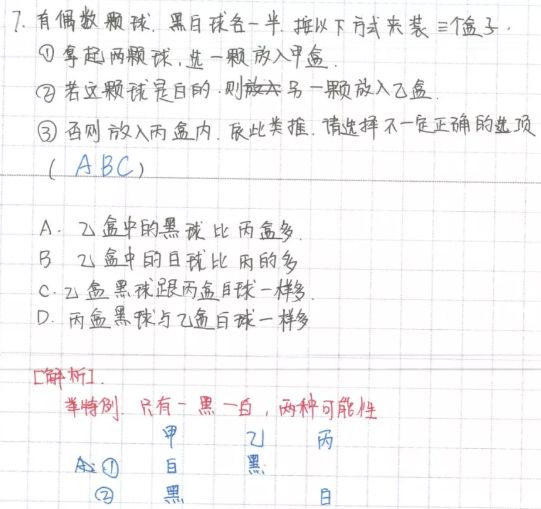 7. 有偶数颗球,黑白球各一半,按以下方式来装三个盒子.
① 拿起两颗球,选一颗放入甲盒.
② 若这颗球是白的,则放入另一颗放入乙盒.
③ 否则放入丙盒内.依此类推.请选择不一定正确的选项
( ABC )
A. 乙盒中的黑球比丙盒多.
B 乙盒中的白球比丙的多
C. 乙盒黑球跟丙盒白球一样多.
D. 丙盒黑球与乙盒白球一样多
[解析].
举特例.只有一黑一白,两种可能性
甲 乙 丙
A: ① 白 黑
② 黑 白